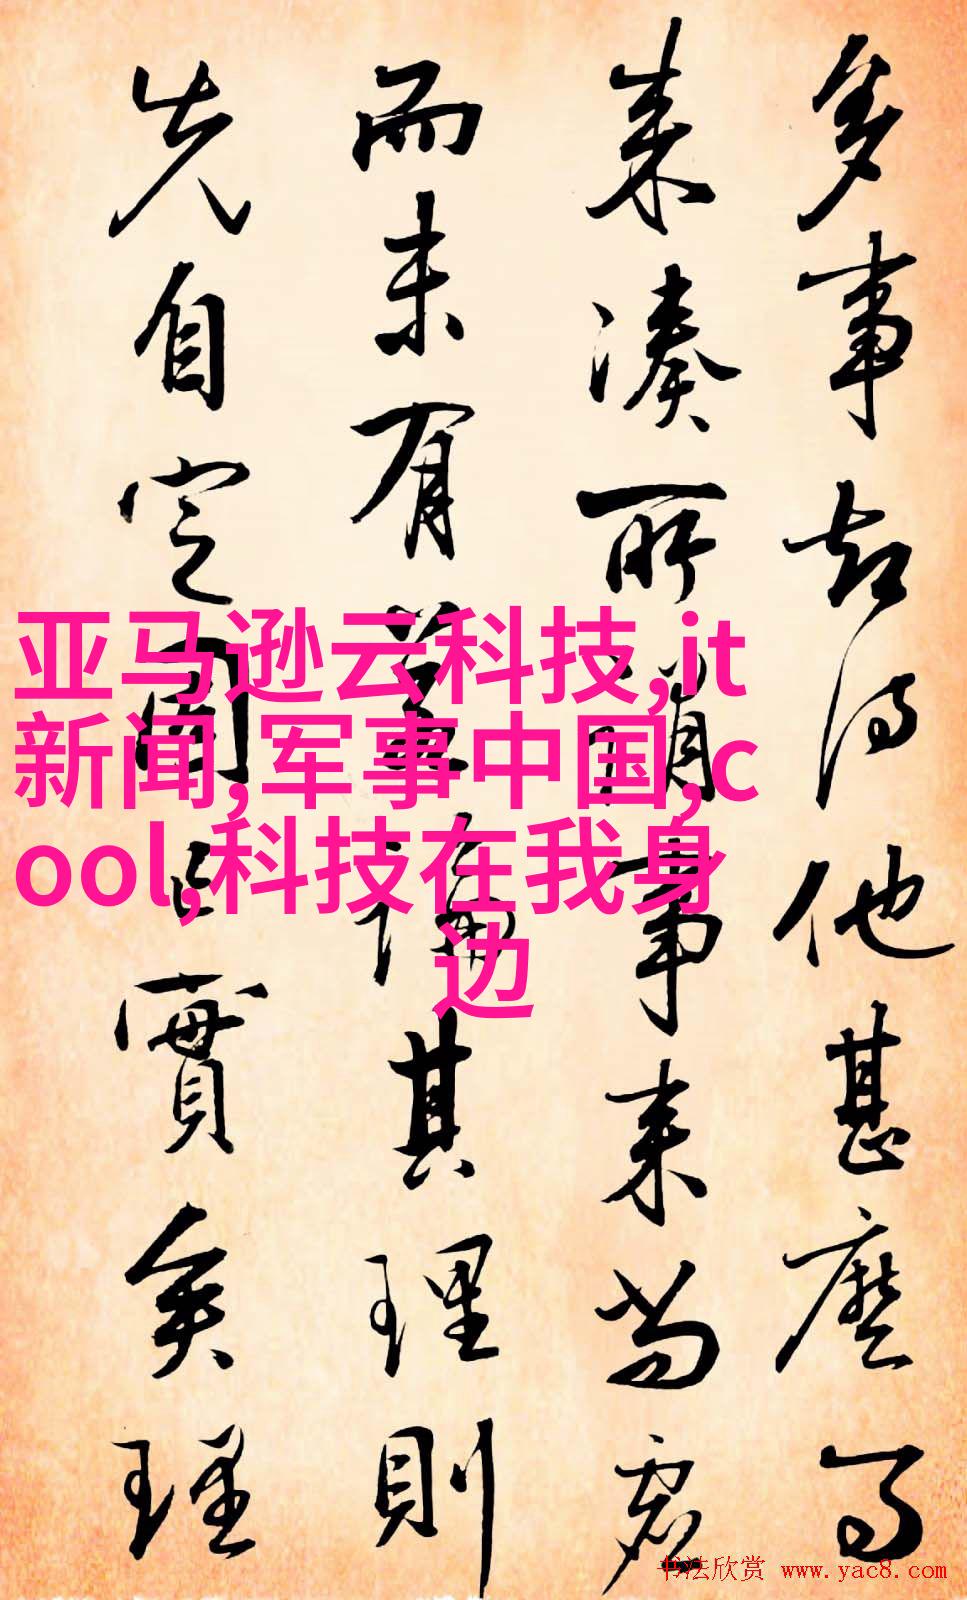 多事都待他甚麼事
来湊所謂事来尚虚
而未有若論其理則
先自定固已實矣理
亚马逊云科技,it
新闻,军事中国,c
ool,科技在我身
边
书法欣赏 www.yac8.com